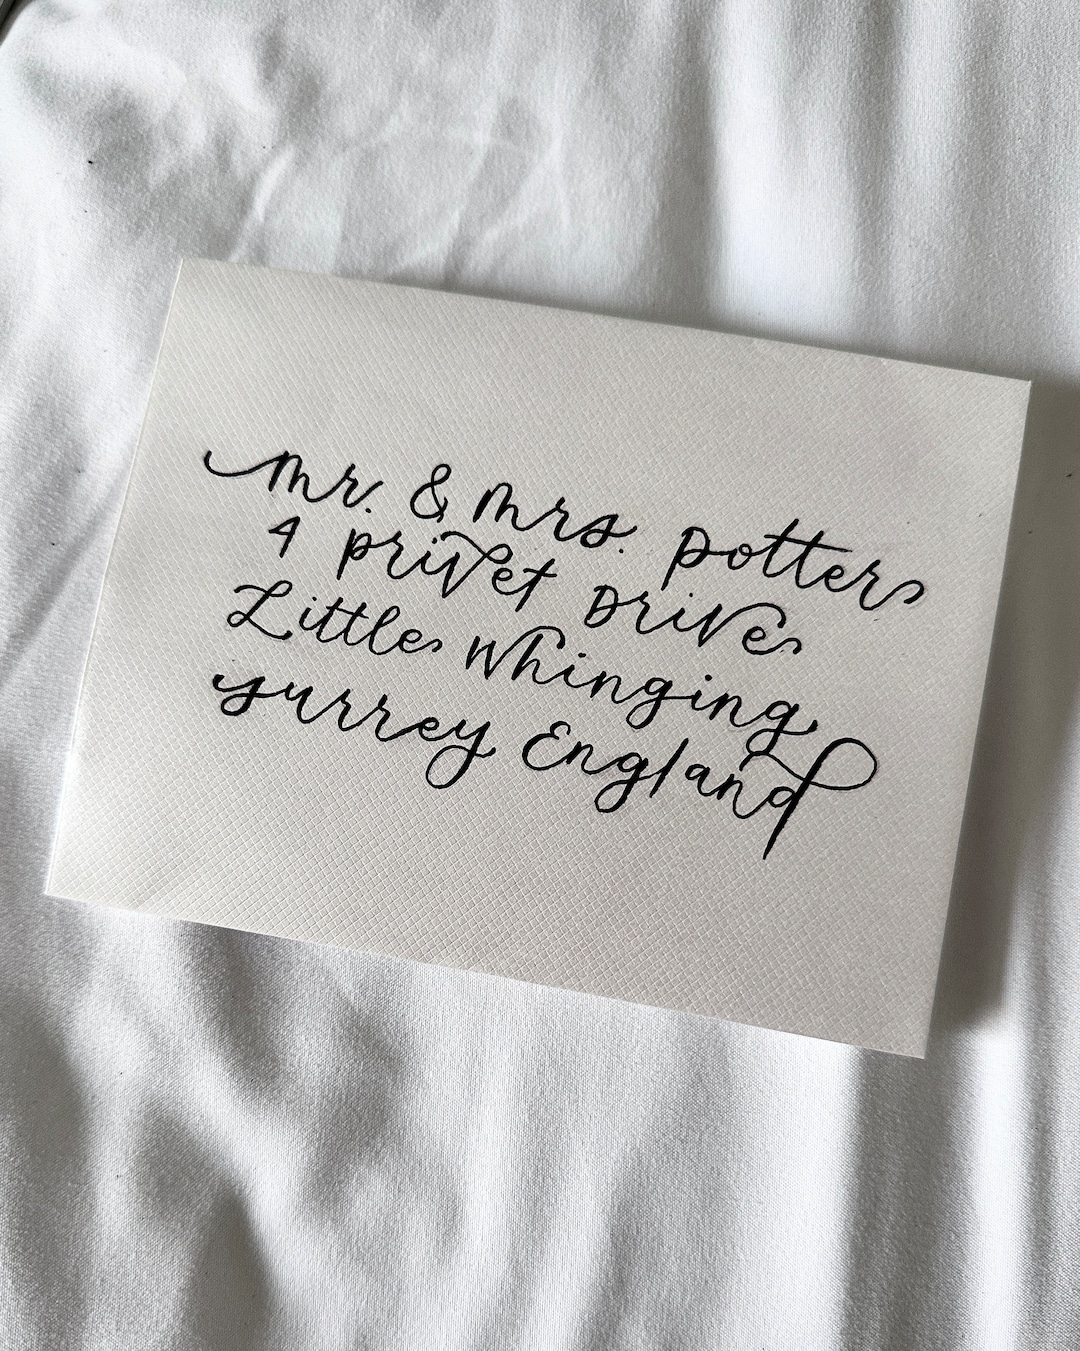 Mr. & Mrs. Potter
4 Privet Drive
Little Whinging
Surrey England